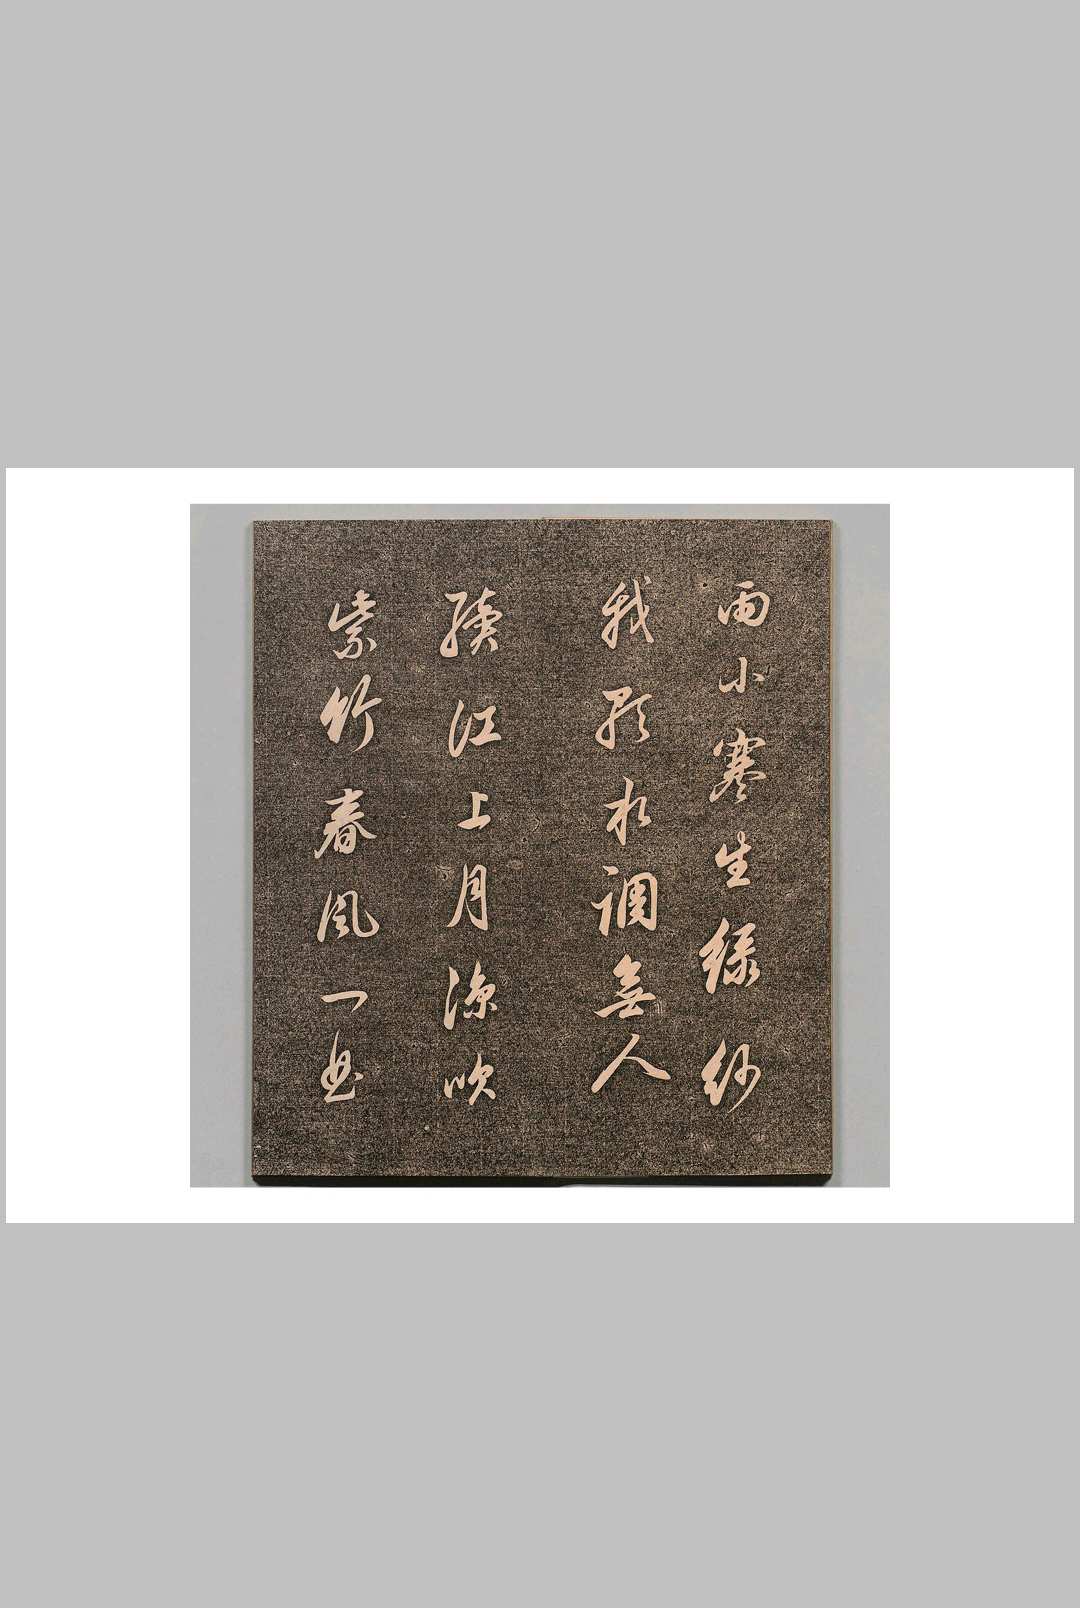 雨小寒生綠紗
我歌水調無人
續江上月涼吹
紫竹春風一曲